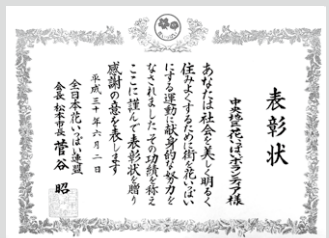 表彰状
中央地区花いっぱいボランティア様
あなたは社会を美しく明るく
住みよくするために街を花いっぱい
にする運動に献身的な努力を
なされましたその功績を称え
ここに謹んで表彰状を贈り
感謝の意を表します
平成三十年六月二日
全日本花いっぱい連盟
会長 松本市長 菅谷 昭